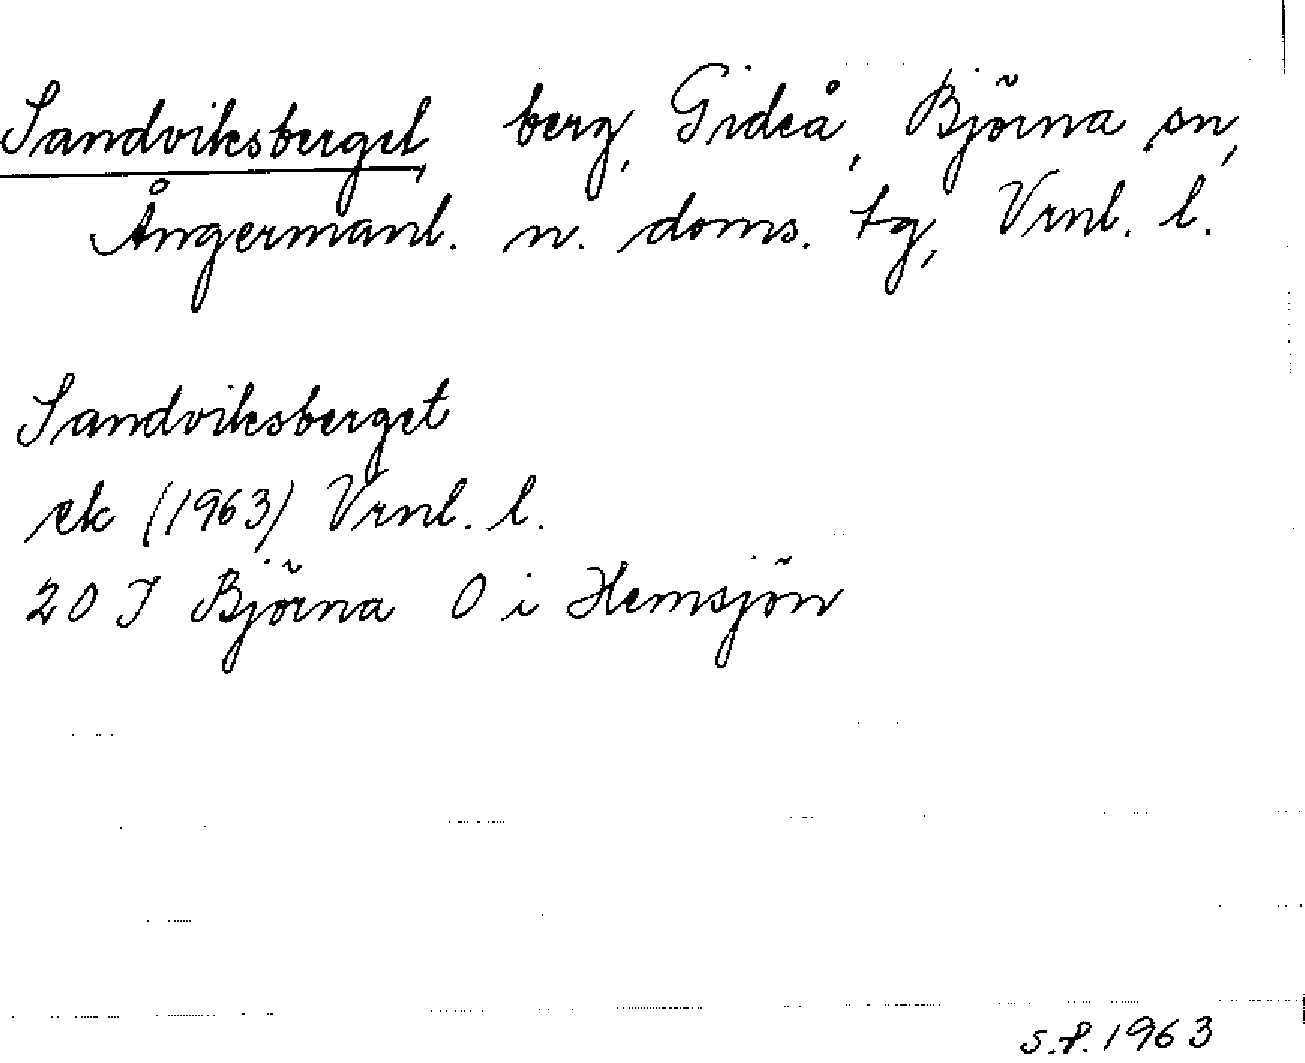 Sandviksberget, berg, Gideå, Björna sn,
Ångermanl. n. doms. tg, Vrnl. l.
Sandviksberget
ek (1963) Vrnl. l.
20 I Björna O i Hemsjön
S.P. 1963